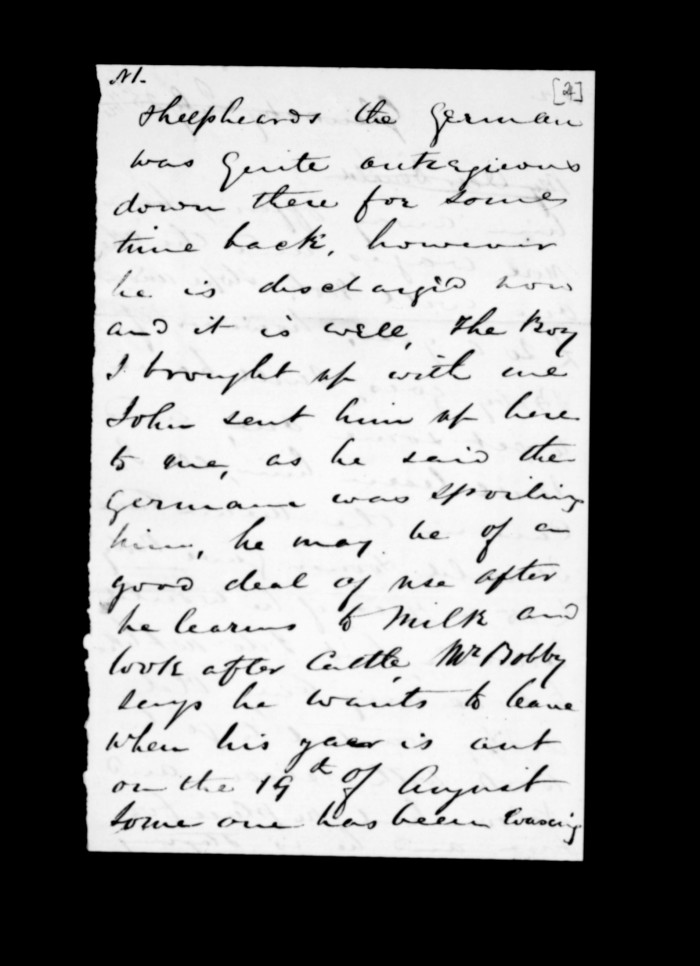 [2]
shepheards the German
was quite outragious
down there for some
time back, however
he is discharg'd now
and it is well, the Boy
I brought up with me
John sent him up here
to me, as he said the
German was spoiling
him, he may be of a
good deal of use after
he learns to Milk and
look after Cattle, Mr Bobby
says he wants to leave
when his year is out
on the 19th of August
some one has been